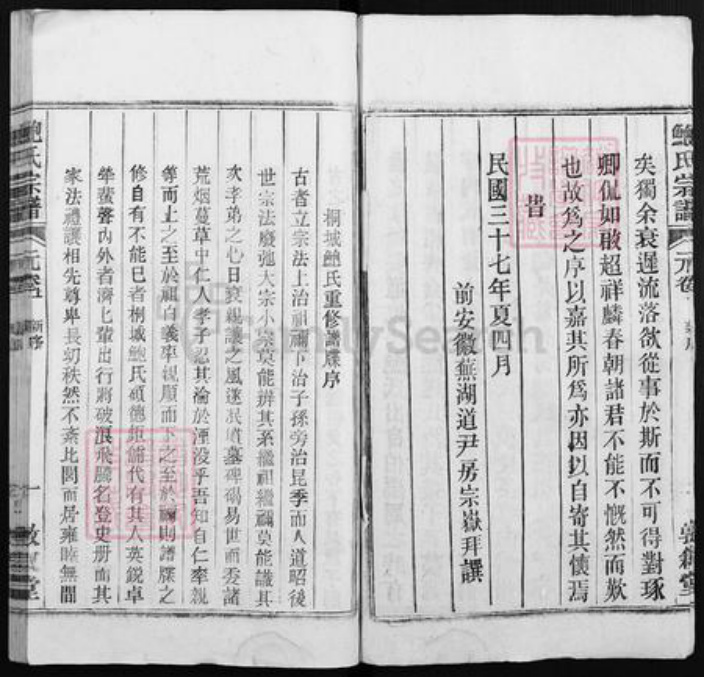 鮑氏宗譜
元卷
矣獨余衰遲流落欲從事於斯而不可得對琢
卿侃如敢超祥麟春朝諸君不能不慨然而歎
也故爲之序以嘉其所爲亦因以自寄其懷焉
昔
民國三十七年夏四月
前安徽蕪湖道尹房宗嶽拜譔
桐城鮑氏重修譜牒序
古者立宗法上治祖禰下治子孫旁治昆季而人道昭後
世宗法廢弛大宗小宗莫能辨其系繼祖繼禰莫能識其
次孝弟之心日衰親讓之風遂泯道墓碑碣易世而委諸
荒烟蔓草中仁人孝子忍其淪於湮没乎吾知自仁率親
等而上之至於祖自義率祖順而下之至於禰則譜牒之
修自有不能已者桐城鮑氏碩德鉅儒代有其人英銳卓
犖蜚聲內外者濟匕輩出行將破浪飛騰名登史册而其
家法禮讓相先尊卑長幼秩然不紊比閭而居雍睦無間
鮑氏宗譜
元卷
新序
一
敦
堂
FamilySearch